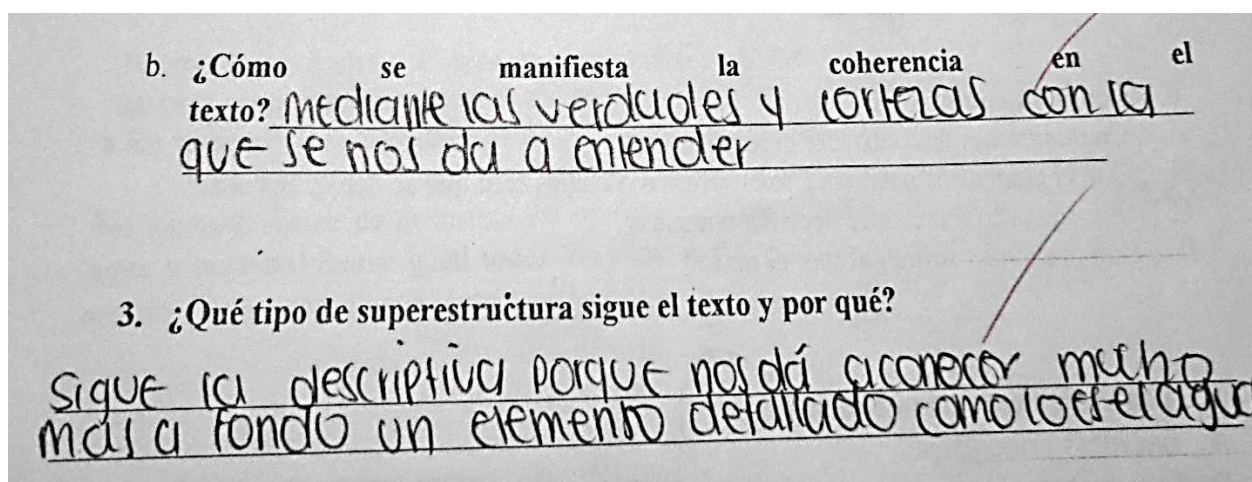 b. ¿Cómo se manifiesta la coherencia en el
texto? mediante las verdades y cortezas con la
que se nos da a entender
3. ¿Qué tipo de superestructura sigue el texto y por qué?
sigue la descriptiva porque nos dá aconocer mucho
mas a fondo un elemento detallado como lo es el agua